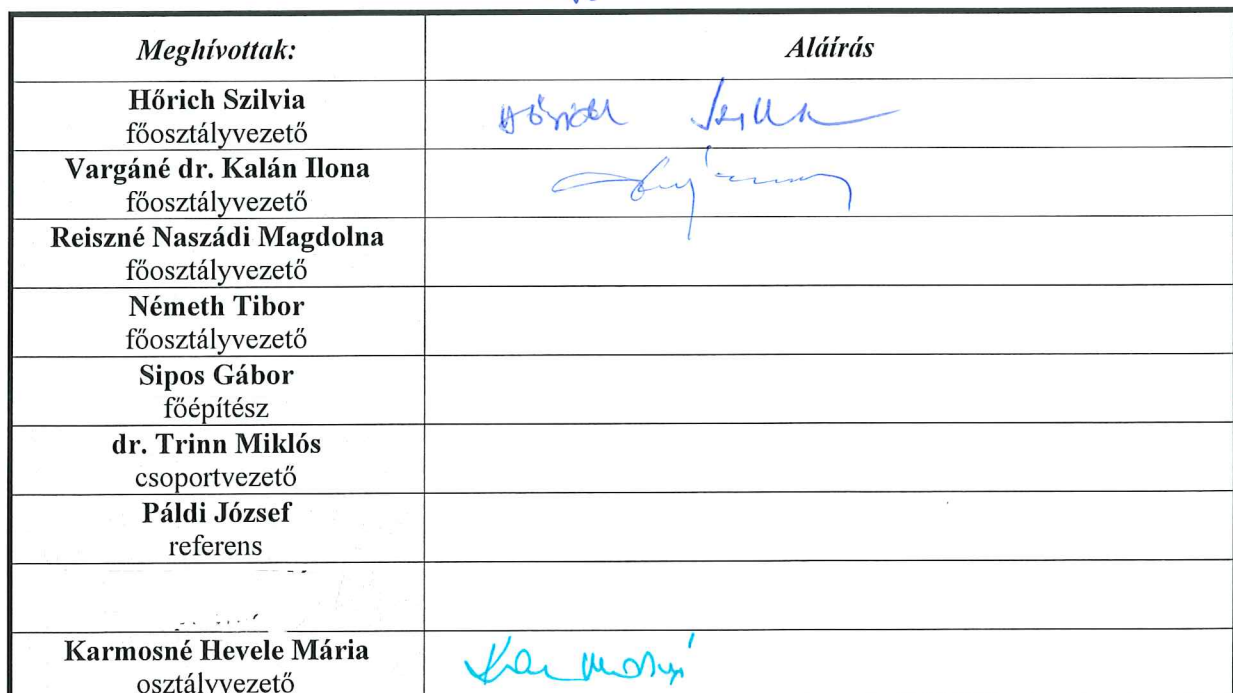 Meghívottak: Aláírás
Hőrich Szilvia Hőrich Szilvia
főosztályvezető
Vargáné dr. Kalán Ilona
főosztályvezető
Reiszné Naszádi Magdolna
főosztályvezető
Németh Tibor
főosztályvezető
Sipos Gábor
főépítész
dr. Trinn Miklós
csoportvezető
Páldi József
referens
Karmosné Hevele Mária Karmosné
osztályvezető